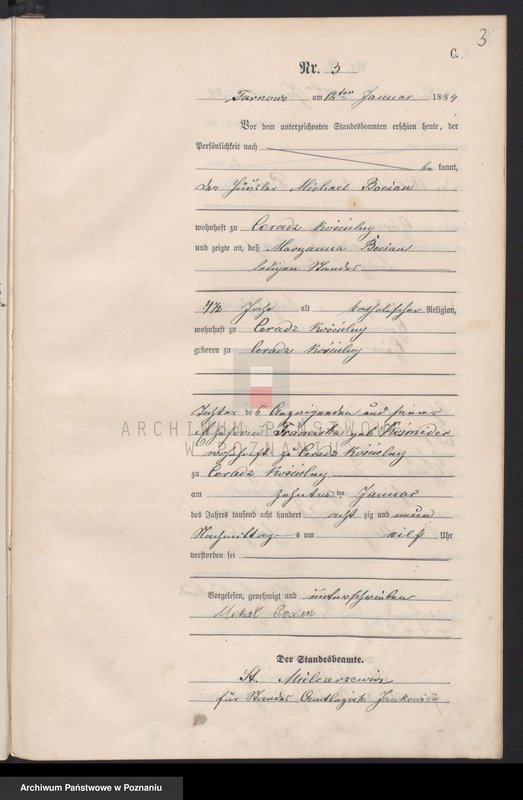 3
C.
Nr. 3
Tarnowo am 12ten Januar 1889
Vor dem unterzeichneten Standesbeamten erschien heute, der
Persönlichkeit nach
be kannt,
der Häusler Michael Bocian
wohnhaft zu Ceradz Kościelny
und zeigte an, daß Maryanna Bocian
ledigen Standes
4½ Jahr alt katholischer Religion,
wohnhaft zu Ceradz Kościelny
geboren zu Ceradz Kościelny
Tochter des Anzeigenden und seiner
Ehefrau Franciska geb
wohnhaft zu Ceradz Kościelny
zu Ceradz Kościelny
am zehnten ten Januar
des Jahres tausend acht hundert acht zig und neun
Nachmittag s um elf Uhr
verstorben sei
Vorgelesen, genehmigt und unterschrieben
Bocian
Der Standesbeamte.
St.
für Standes Amtbezirk Jankowice
ARCHIWUM PAŃSTWOWE
W POZNANIU
Archiwum Państwowe w Poznaniu